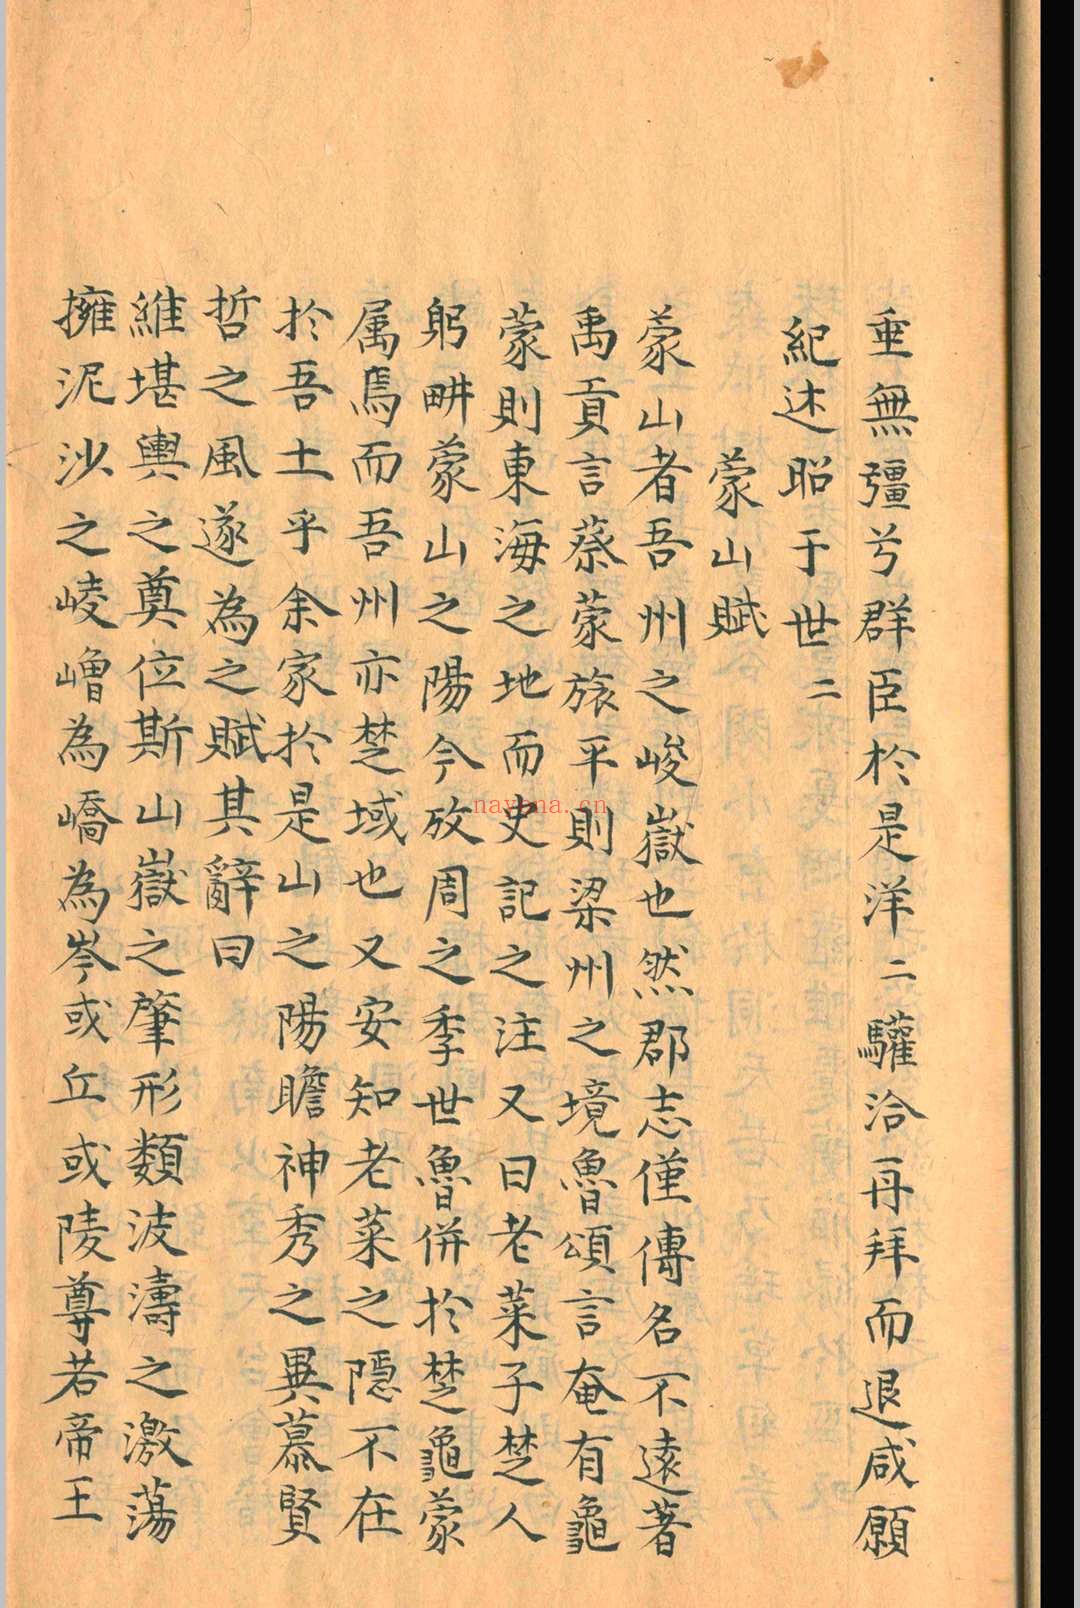 垂無彊兮群臣於是洋二驩洽再拜而退咸願
紀述昭于世二
蒙山賦
蒙山者吾州之峻嶽也然郡志僅傳名不遠著
禹貢言蔡蒙旅平則梁州之境魯頌言奄有龜
蒙則東海之地而史記之注又曰老菜子楚人
躬畊蒙山之陽今攷周之季世魯併於楚龜蒙
属焉而吾州亦楚域也又安知老菜之隱不在
於吾土乎余家於是山之陽瞻神秀之異慕賢
哲之風遂為之賦其辭曰
維堪輿之奠位斯山嶽之肇形類波濤之激蕩
擁泥沙之崚嶒為嶠為岑或丘或陵尊若帝王
nayona.cn